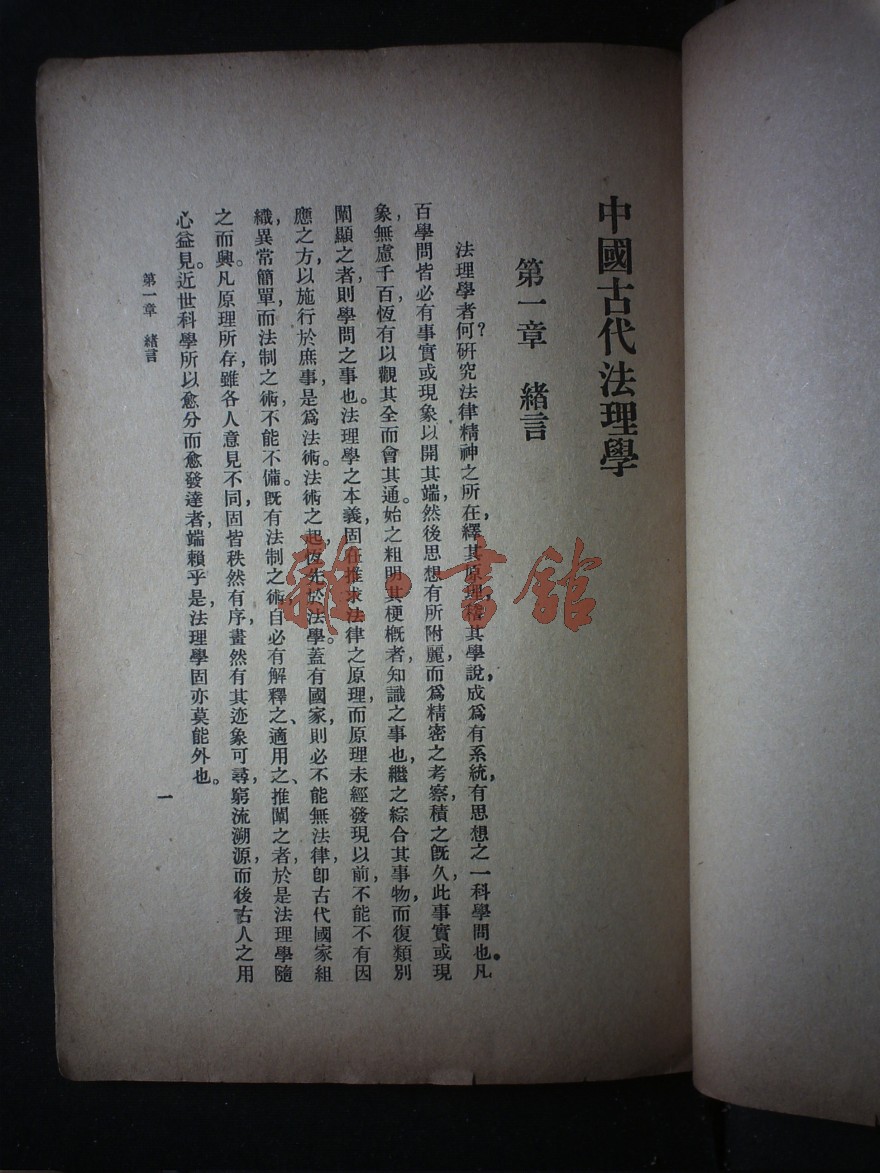 中國古代法理學
第一章　緒言
法理學者何？研究法律精神之所在，繹其原理，稽其學說，成爲有系統，有思想之一科學問也。凡
百學問皆必有事實或現象以開其端，然後思想有所附麗，而爲精密之考察，積之旣久，此事實或現
象，無慮千百，恆有以觀其全而會其通。始之粗明其梗槪者，知識之事也，繼之綜合其事物，而復類別
闡顯之者，則學問之事也。法理學之本義，固在推求法律之原理，而原理未經發現以前，不能不有因
應之方，以施行於庶事，是爲法術。法術之起，恆先於法學。蓋有國家，則必不能無法律，卽古代國家組
織，異常簡單，而法制之術，不能不備。旣有法制之術，自必有解釋之、適用之、推闡之者，於是法理學隨
之而興。凡原理所存，雖各人意見不同，固皆秩然有序，畫然有其迹象可尋，窮流溯源，而後古人之用
心益見。近世科學所以愈分而愈發達者，端賴乎是，法理學固亦莫能外也。
第一章　緒言
一
雜·書館